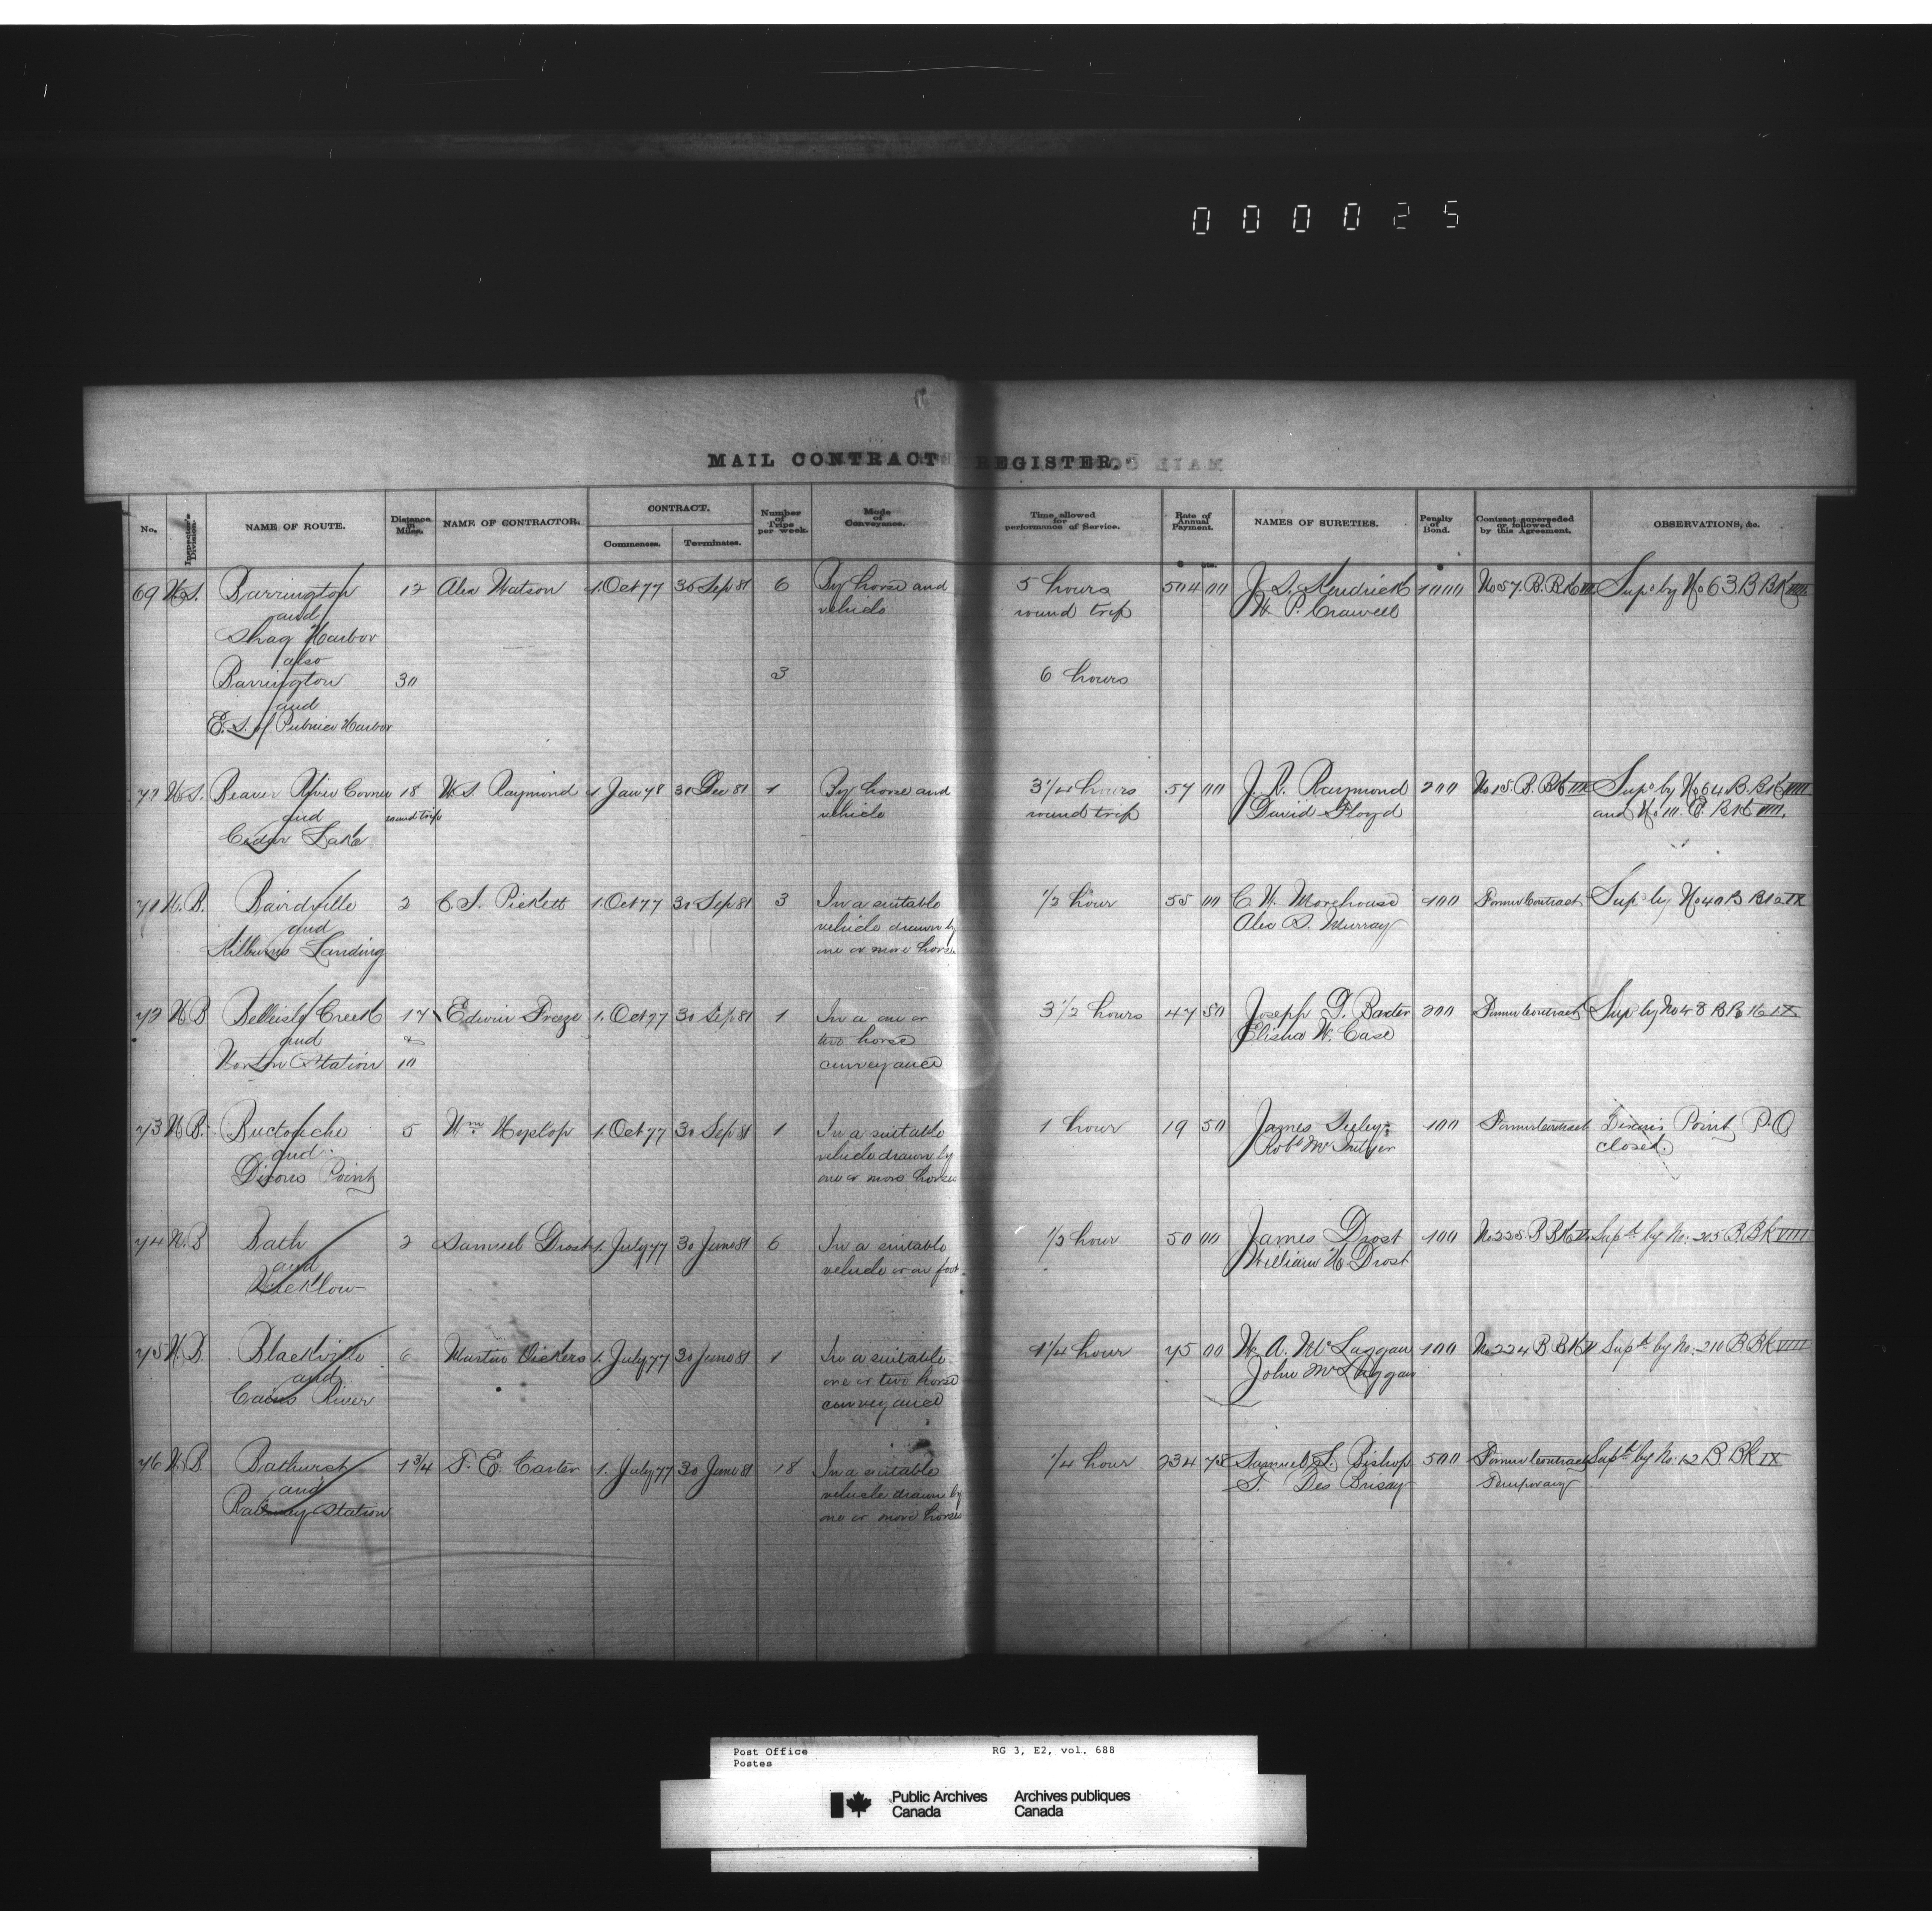 000025
MAIL CONTRACT REGISTER.
No. Inspector's Division. NAME OF ROUTE. Distance in Miles. NAME OF CONTRACTOR. CONTRACT. Commences. Terminates. Number of Trips per week. Mode of Conveyance. Time allowed for performance of Service. Rate of Annual Payment. NAMES OF SURETIES. Penalty of Bond. Contract superseded or followed by this Agreement. OBSERVATIONS, &c.
$ cts. $
69 N.S. Barrington 12 Alex Watson 1. Oct 77 30 Sep 81 6 By horse and 5 hours 504 00 J. S. Kendrick 1000 No 57. B. BK Sup. by No 63. B BK
and vehicle round trip W. P. Crowell
Shag Harbor
also
Barrington 30 3 6 hours
and
E. S. of Pubnico Harbor
70 N.S. Beaver River Corner 18 W. S. Raymond 1 Jany 78 31 Dec 81 1 By horse and 3 1/4 hours 57 00 J. R. Raymond 200 No 15. B. BK III Sup. by No 64 B. BK IIII
and round trip vehicle round trip David Floyd and No 111. C. BK IIII.
Cedar Lake
71 N.B. Bairdville 2 C. S. Pickett 1. Oct 77 30 Sep 81 3 In a suitable 1/2 hour 55 00 C. W. Morehouse 100 Former Contract Sup. by No 40 B BK IX
and vehicle drawn by Alex S. Murray
Kilburns Landing one or more horses
72 N.B Belleisle Creek 17 Edwin Freeze 1. Oct 77 30 Sep 81 1 In a one or 3 1/2 hours 47 50 Joseph G. Baxter 200 Former Contract Sup. by No 43 B BK IX
and & two horse Elisha W. Case
Norton Station 10 conveyance
73 N.B. Buctouche 5 Wm Hyslop 1. Oct 77 30 Sep 81 1 In a suitable 1 hour 19 50 James 100 Former Contract Dixons Point P.O
and vehicle drawn by Robt closed.
Dixons Point one or more horses
74 N.B Bath 2 Samuel Drost 1. July 77 30 June 81 6 In a suitable 1/2 hour 50 00 James Drost 100 No 225. B BK II. Supd. by No: 205 B. BK VIIII
and vehicle or on foot. William H. Drost
Wicklow
75 N.B. Blackville 6 Martin Vickers 1. July 77 30 June 81 1 In a suitable 1 1/4 hour 75 00 W. A. McLaggan 100 No 224 B BK II Supd. by No: 210 B BK VIIII
and one or two horse John McLaggan
Cains River conveyance
76 N.B Bathurst 1 3/4 T. E. Carter 1. July 77 30 June 81 18 In a suitable 1/4 hour 234 75 Samuel L. Bishop 500 Former Contract Supd. by No: 12 B BK IX
and vehicle drawn by T. Des Brisay Temporary
Railway Station one or more horses
Post Office RG 3, E2, vol. 688
Postes
Public Archives Archives publiques
Canada Canada